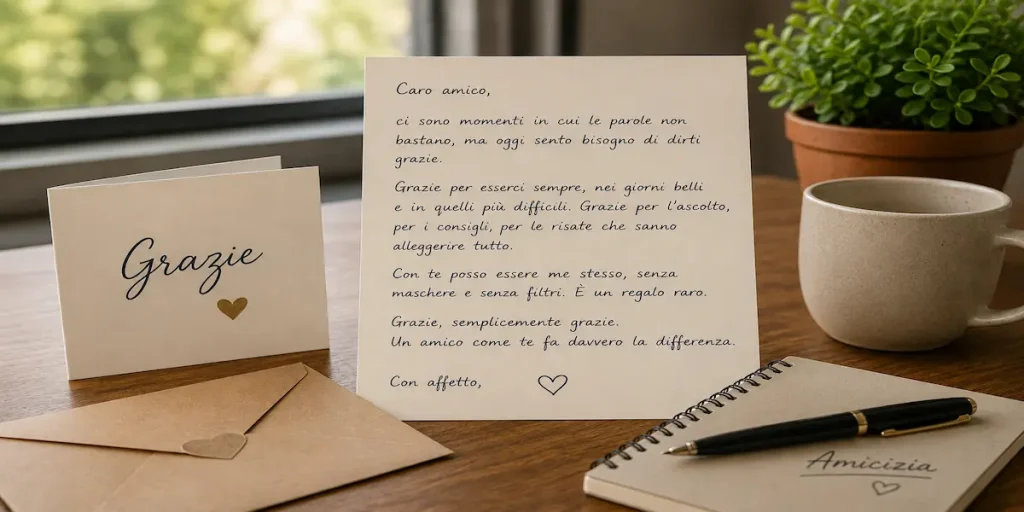 Grazie
Caro amico,
ci sono momenti in cui le parole non
bastano, ma oggi sento bisogno di dirti
grazie.
Grazie per esserci sempre, nei giorni belli
e in quelli più difficili. Grazie per l'ascolto,
per i consigli, per le risate che sanno
alleggerire tutto.
Con te posso essere me stesso, senza
maschere e senza filtri. È un regalo raro.
Grazie, semplicemente grazie.
Un amico come te fa davvero la differenza.
Con affetto,
Amicizia